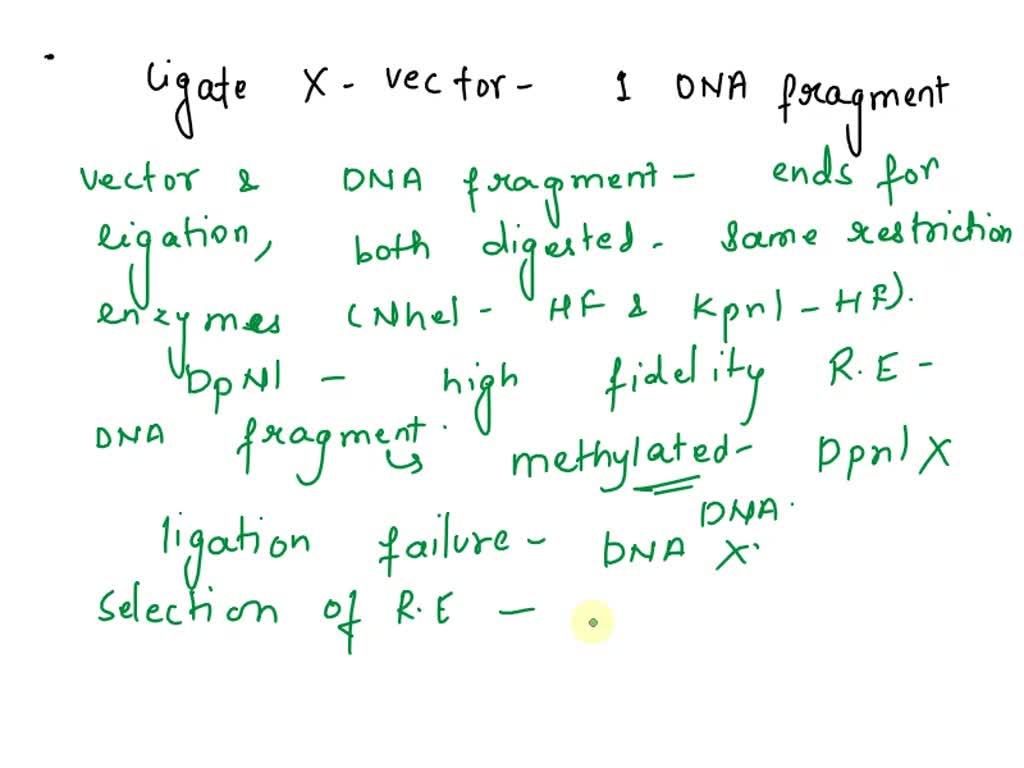 ligate X - vector - 1 DNA fragment
vector & DNA fragment - ends for
ligation, both digested. same restriction
enzymes (Nhel - HF & Kpnl - HF).
DpNl - high fidelity R.E -
DNA fragment. methylated - Dpnl X
DNA.
ligation failure - DNA X.
selection of R.E -